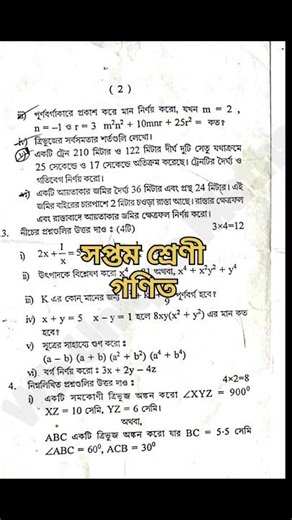 ( 2 )
iii) পূর্ণবর্গাকারে প্রকাশ করে মান নির্ণয় করো, যখন m = 2 ,
n = –1 ও r = 3 m²n² + 10mnr + 25r² = কত?
iv) ত্রিভুজের সর্বসমতার শর্তগুলি লেখো।
একটি ট্রেন 210 মিটার ও 122 মিটার দীর্ঘ দুটি সেতু যথাক্রমে
25 সেকেন্ডে ও 17 সেকেন্ডে অতিক্রম করেছে। ট্রেনটির দৈর্ঘ্য ও
গতিবেগ নির্ণয় করো।
একটি আয়তাকার জমির দৈর্ঘ্য 36 মিটার এবং প্রস্থ 24 মিটার। এই
জমির বাইরের চারপাশে 2 মিটার চওড়া রাস্তা আছে। রাস্তার ক্ষেত্রফল
এবং রাস্তাবাদে আয়তাকার জমির ক্ষেত্রফল নির্ণয় করো।
3. নীচের প্রশ্নগুলির উত্তর দাও : (4টি) 3×4=12
i) 2x + 1/x = 5
সপ্তম শ্রেণী
ii) উৎপাদকে বিশ্লেষণ করো x⁴ 81 অথবা, x⁴ + x²y² + y⁴
গণিত
iii) K এর কোন্ মানের জন্য 9 পূর্ণবর্গ হবে?
iv) x + y = 5 x – y = 1 হলে 8xy(x² + y²) এর মান কত
হবে?
v) সূত্রের সাহায্যে গুণ করো :
(a – b) (a + b) (a² + b²) (a⁴ + b⁴)
vi) বর্গ নির্ণয় করো : 3x + 2y – 4z
4. নিম্নলিখিত প্রশ্নগুলির উত্তর দাও : 4×2=8
i) একটি সমকোণী ত্রিভুজ অঙ্কন করো ∠XYZ = 900⁰
XZ = 10 সেমি, YZ = 6 সেমি।
অথবা,
ABC একটি ত্রিভুজ অঙ্কন করো যার BC = 5·5 সেমি
∠ABC = 60⁰, ACB = 30⁰